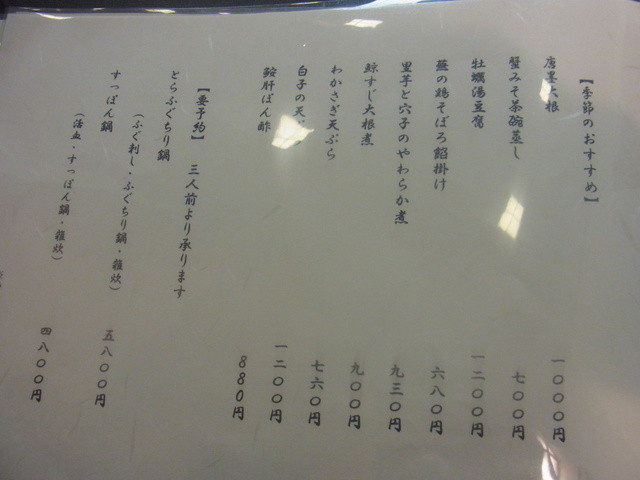 【季節のおすすめ】
唐墨大根 一〇〇〇円
蟹みそ茶碗蒸し 七〇〇円
牡蠣湯豆腐 一二〇〇円
蕪の鶏そぼろ餡掛け 六八〇円
里芋と穴子のやわらか煮 九三〇円
鯨すじ大根煮 九〇〇円
わかさぎ天ぷら 七六〇円
白子の天ぷ 一二〇〇円
鮟肝ぽん酢 880円
【要予約】 三人前より承ります
とらふぐちり鍋
（ふぐ刺し・ふぐちり鍋・雑炊） 五八〇〇円
すっぽん鍋
（活血・すっぽん鍋・雑炊） 四八〇〇円